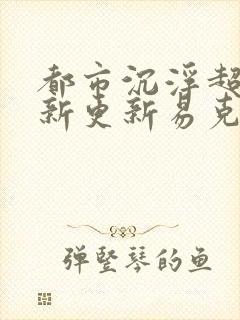 都市沉浮超
新更新易克
弹竖琴的鱼